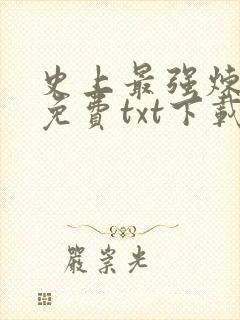 史上最强炼
免費txt下載
嚴崇光